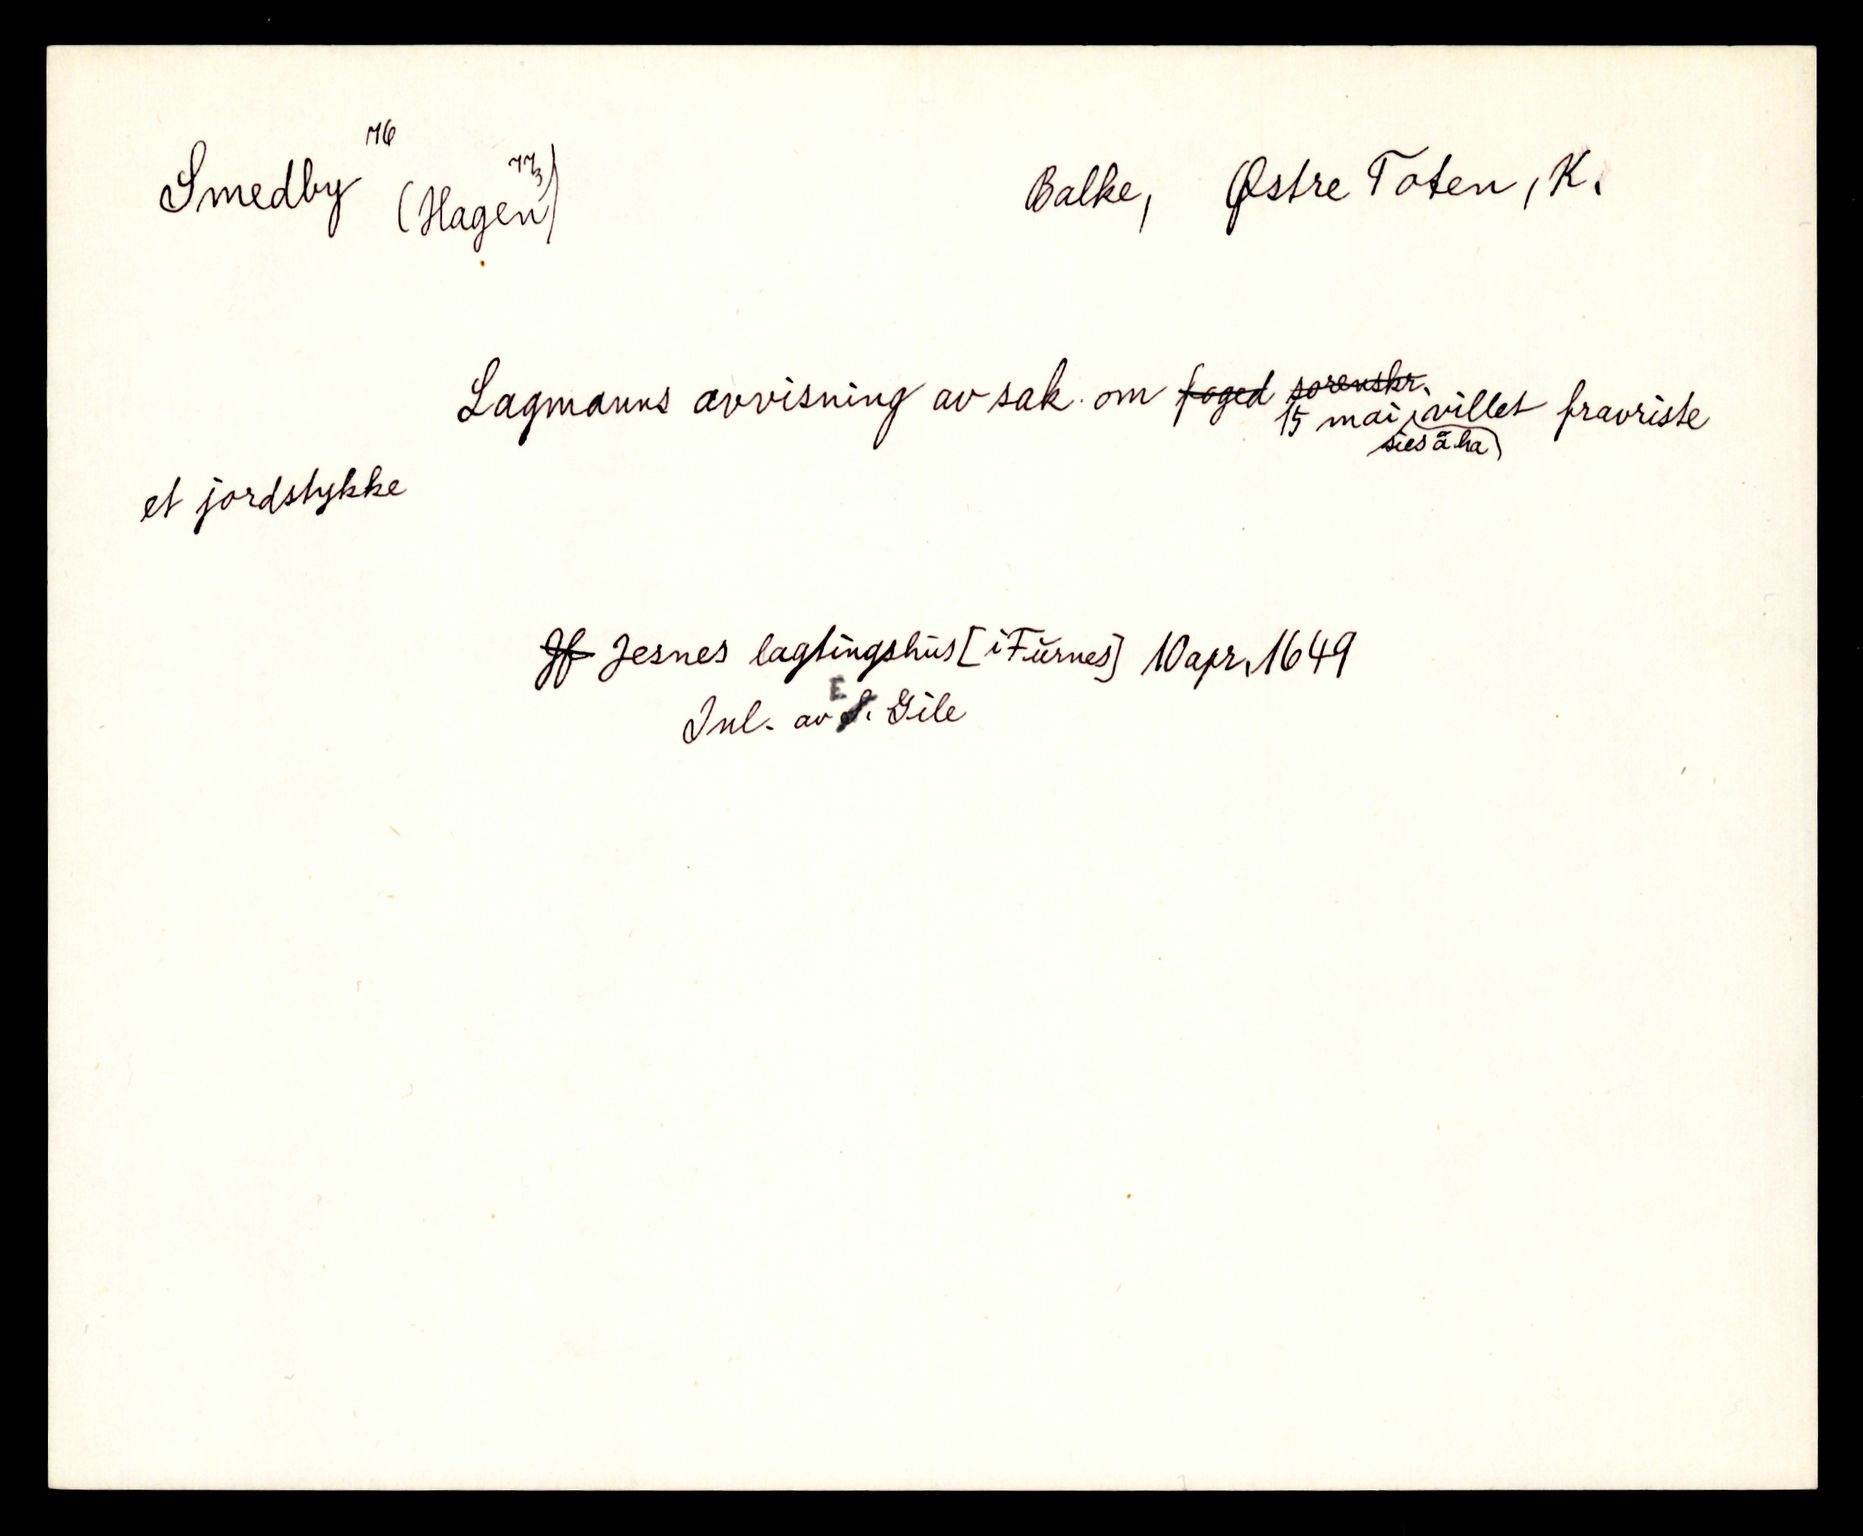 Smedby 76 (Hagen 77/3) Balke, Østre Toten, K.
Lagmanns avvisning av sak om foged sorenskr. villet fravriste
15 mai, sies å ha
et jordstykke
Jf Jesnes lagtingshus [i Furnes] 10 apr. 1649
Inl. av E. Gile